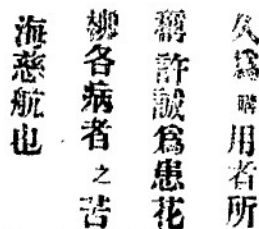 久爲購用者所
稱許誠爲患花
柳各病者之苦
海慈航也